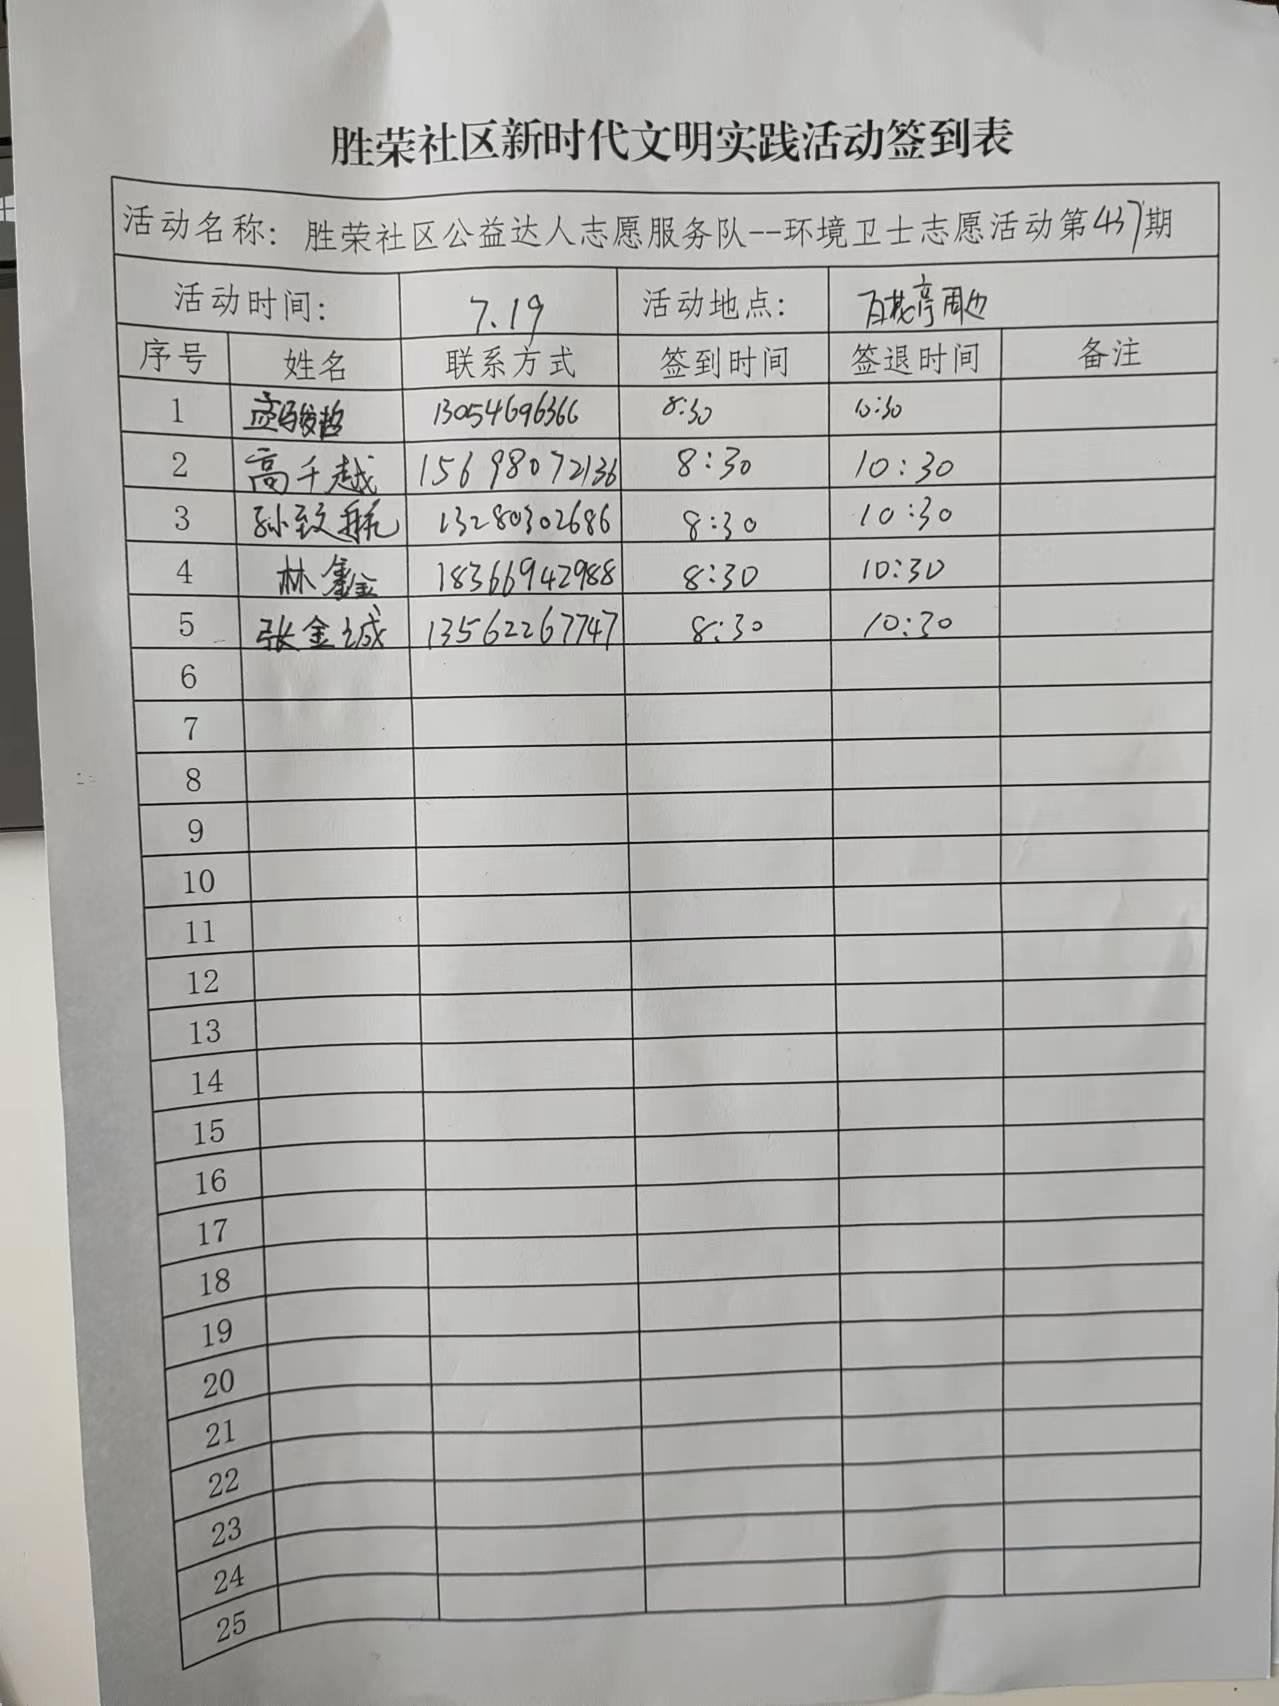 胜荣社区新时代文明实践活动签到表
活动名称：胜荣社区公益达人志愿服务队--环境卫士志愿活动第437期
活动时间： 7.19 活动地点： 百花亭周边
序号 姓名 联系方式 签到时间 签退时间 备注
1 13054696366 8:30 10:30
2 高千越 15698072136 8:30 10:30
3 孙致航 13280302686 8:30 10:30
4 林鑫 18366942988 8:30 10:30
5 张金诚 13562267747 8:30 10:30
6
7
8
9
10
11
12
13
14
15
16
17
18
19
20
21
22
23
24
25